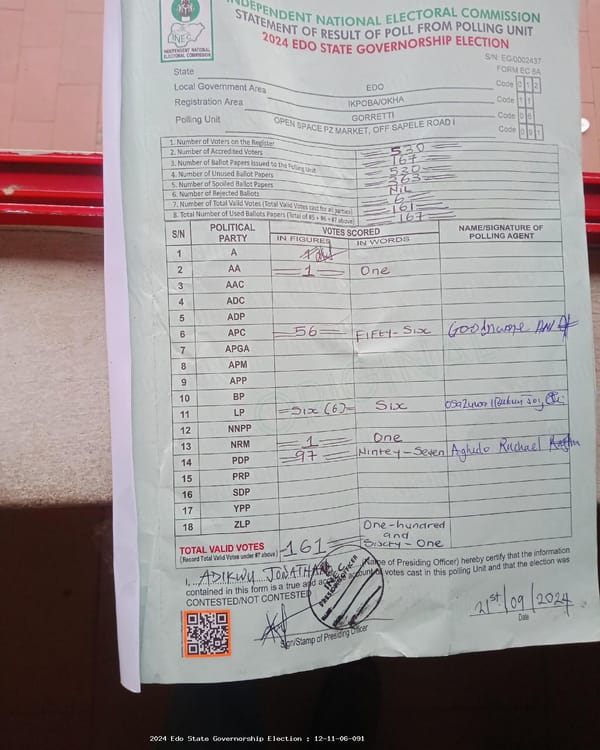 INEC
INDEPENDENT NATIONAL
ELECTORAL COMMISSION
INDEPENDENT NATIONAL ELECTORAL COMMISSION
STATEMENT OF RESULT OF POLL FROM POLLING UNIT
2024 EDO STATE GOVERNORSHIP ELECTION
S/N: EG/0002437
FORM EC 8A
State EDO Code 0 1 2
Local Government Area IKPOBA/OKHA Code 1 1
Registration Area GORRETTI Code 0 6
Polling Unit OPEN SPACE PZ MARKET, OFF SAPELE ROAD I Code 0 9 1
1. Number of Voters on the Register 530
2. Number of Accredited Voters 167
3. Number of Ballot Papers issued to the Polling Unit 530
4. Number of Unused Ballot Papers 363
5. Number of Spoiled Ballot Papers Nil
6. Number of Rejected Ballots 6
7. Number of Total Valid Votes (Total Valid Votes cast for all parties) 161
8. Total Number of Used Ballots Papers (Total of #5 + #6 + #7 above) 167
S/N POLITICAL PARTY VOTES SCORED NAME/SIGNATURE OF POLLING AGENT
IN FIGURES IN WORDS
1 A
2 AA 1 One
3 AAC
4 ADC
5 ADP
6 APC 56 Fifty-Six
7 APGA
8 APM
9 APP
10 BP
11 LP Six (6) Six
12 NNPP
13 NRM 1 One
14 PDP 97 Nintey-Seven Aghedo Rachael
15 PRP
16 SDP
17 YPP
18 ZLP
TOTAL VALID VOTES 161 One-hundred and Sixty-One
(Record Total Valid Votes under #7 above)
I, ADIKWU JONATHAN (Name of Presiding Officer) hereby certify that the information
contained in this form is a true and account of votes cast in this polling Unit and that the election was
CONTESTED/NOT CONTESTED
INEC
PRESIDING OFFICER
21st/09/2024
Sign/Stamp of Presiding Officer
Date
2024 Edo State Governorship Election : 12-11-06-091